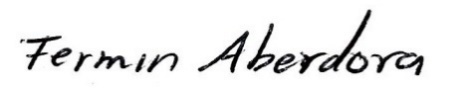 Fermin Aberdora